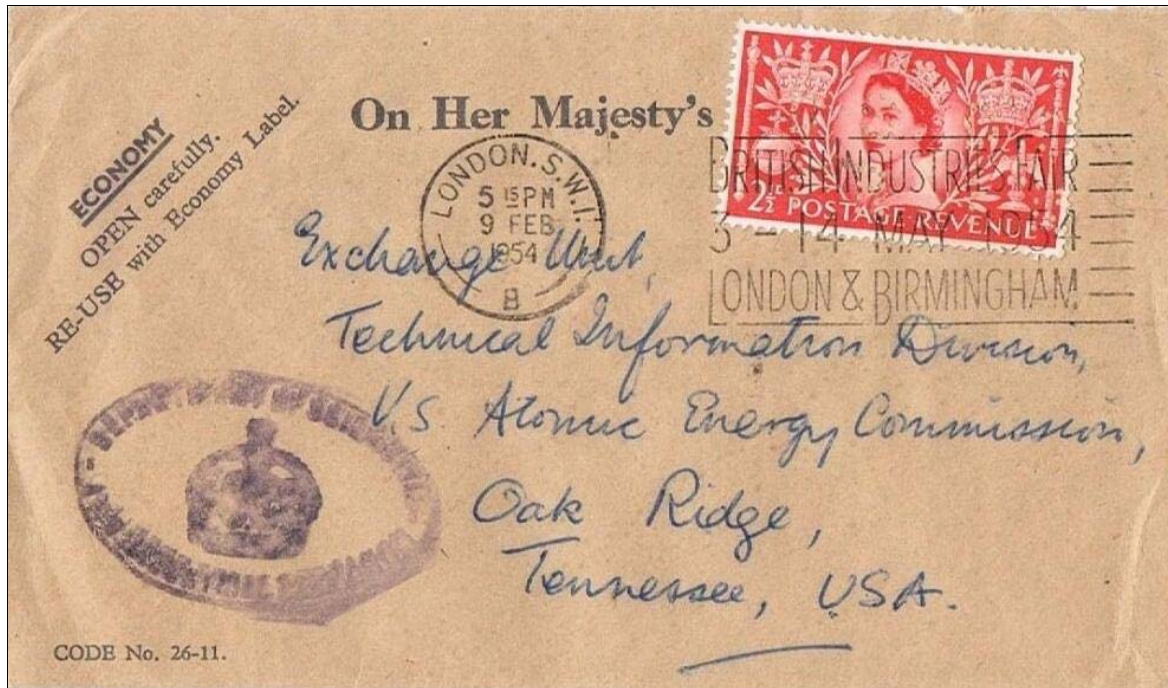 ECONOMY
OPEN carefully.
RE-USE with Economy Label.
On Her Majesty's
LONDON.S.W.1.
5 15 PM
9 FEB
1954
B
2½D POSTAGE REVENUE
BRITISH INDUSTRIES FAIR
3 - 14 MAY 1954
LONDON & BIRMINGHAM
Exchange Unit,
Technical Information Division,
U.S Atomic Energy Commission,
Oak Ridge,
Tennessee, USA.
CODE No. 26-11.